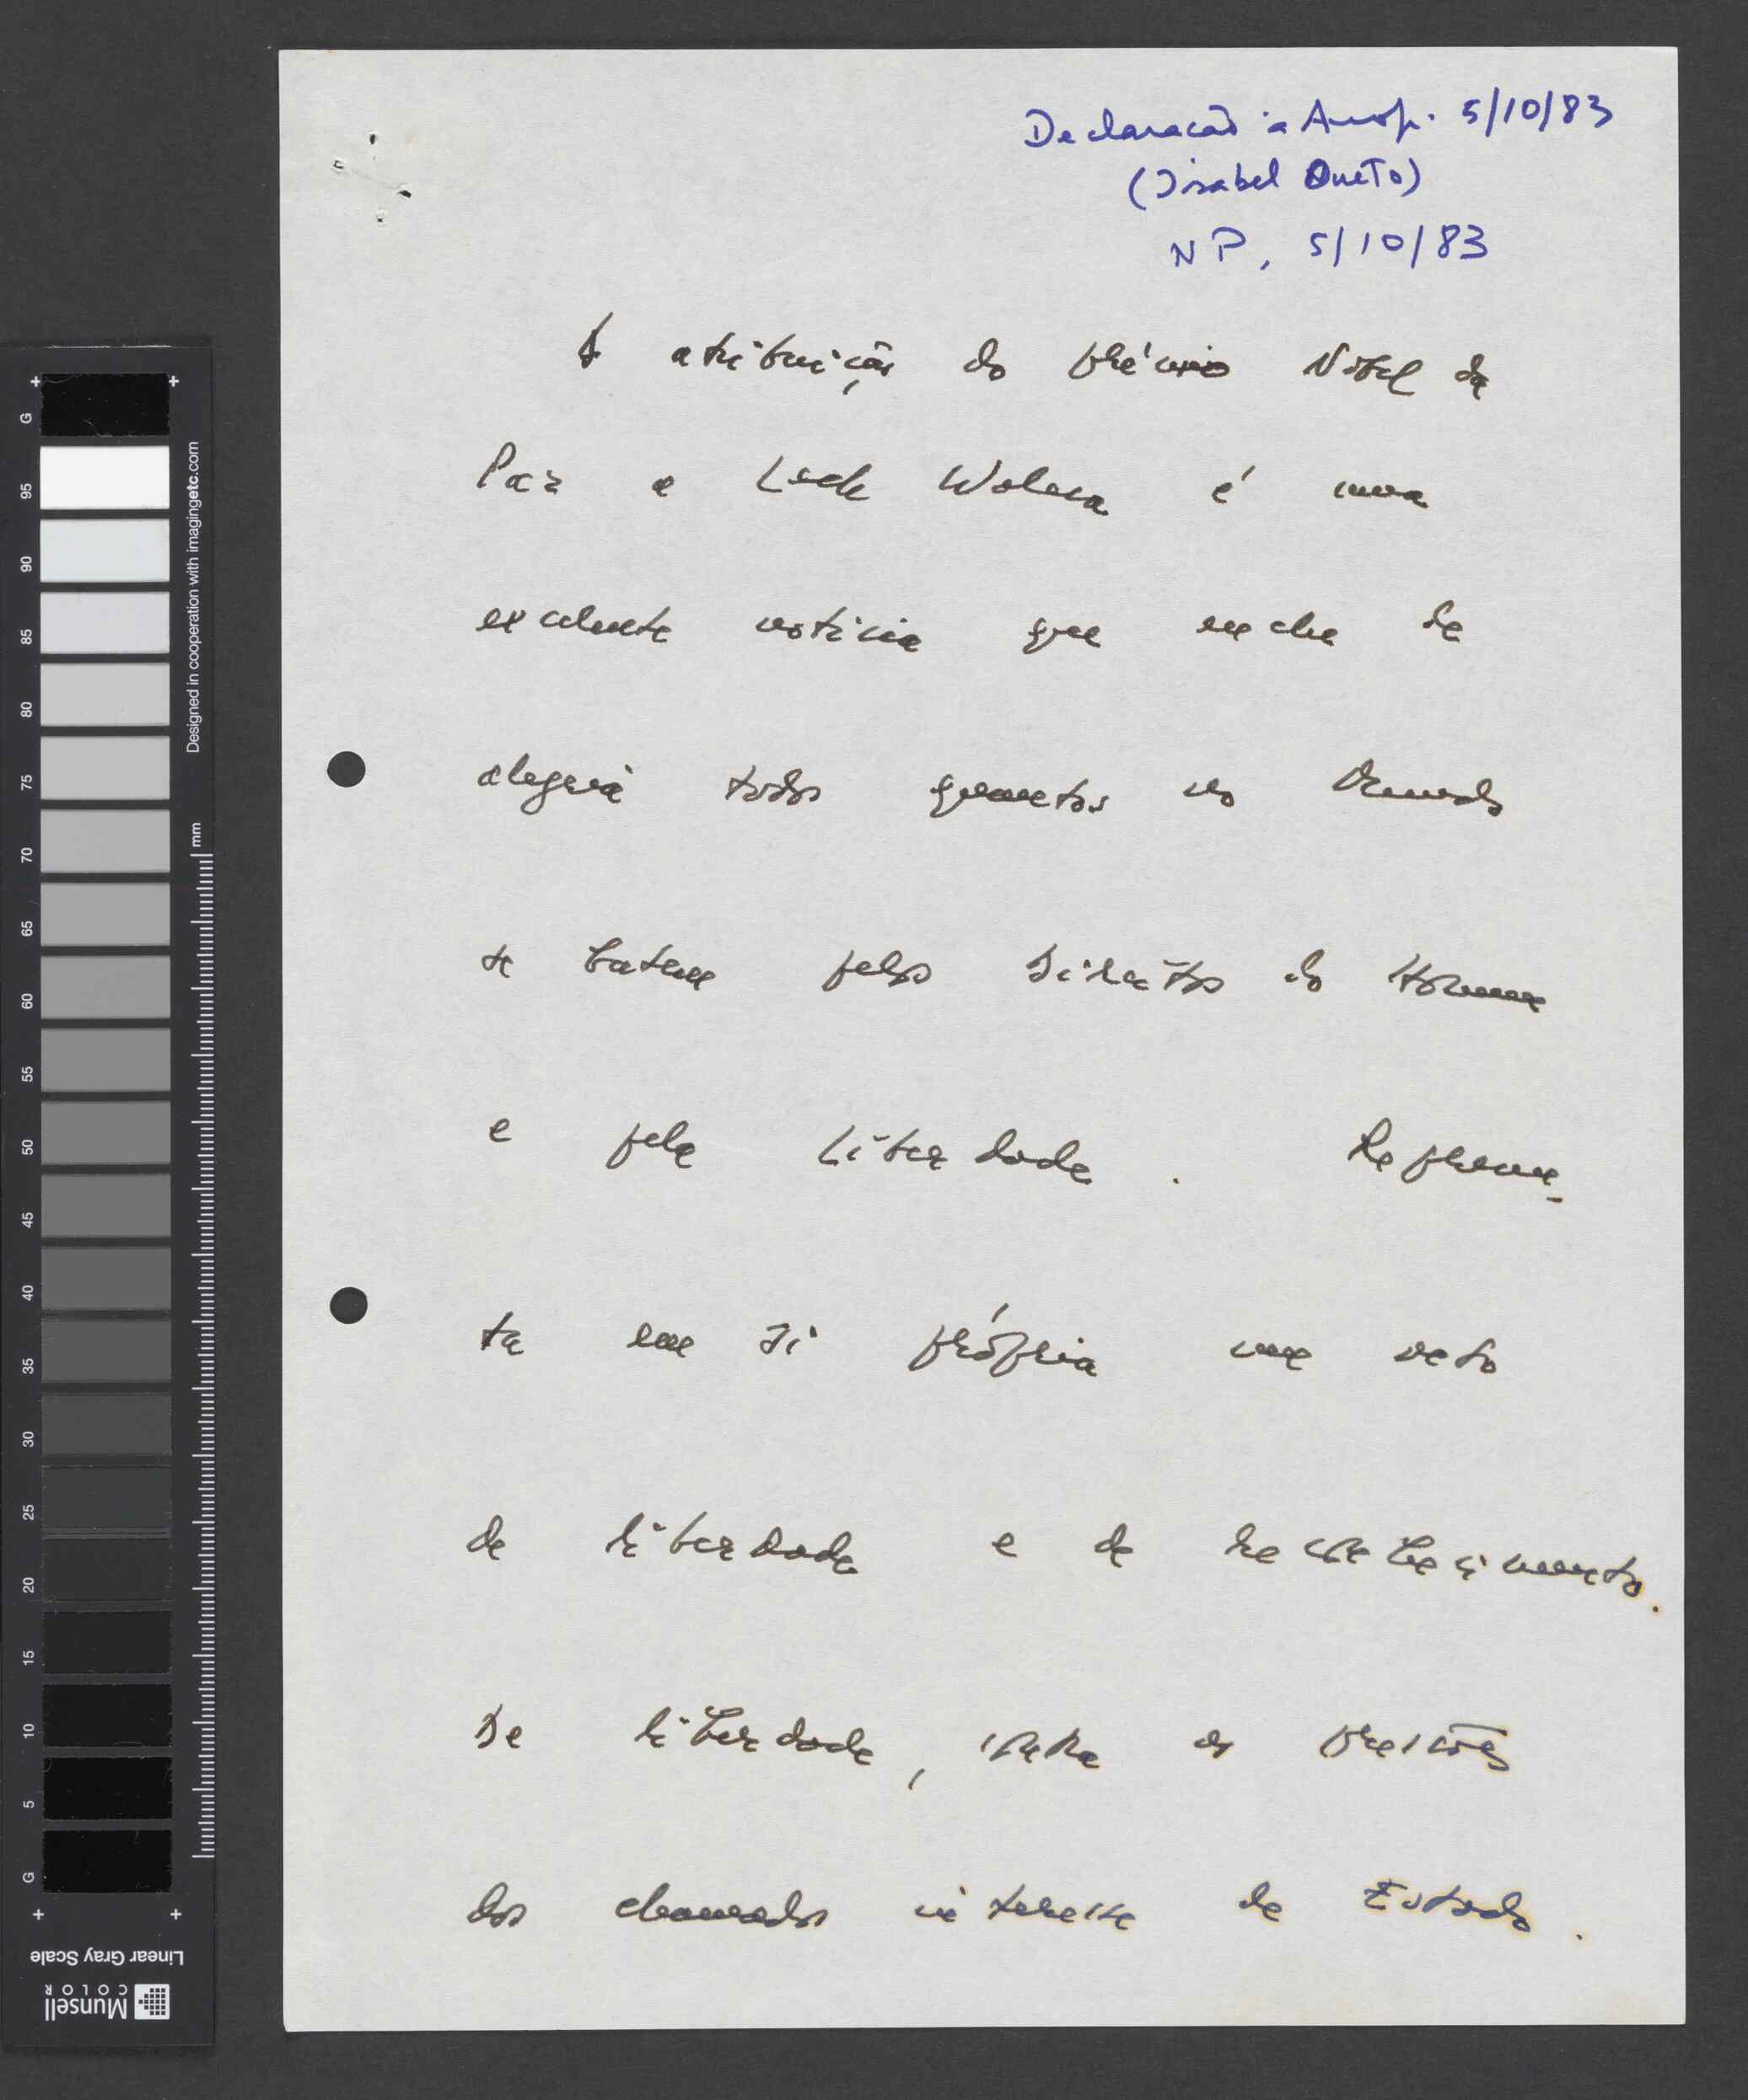 Declaração à Anop. 5/10/83
(Isabel Oneto)
NP, 5/10/83
A atribuição do prémio Nobel da
Paz a Lech Walesa é uma
excelente notícia que enche de
alegria todos quantos no Mundo
se batem pelos Direitos do Homem
e pela Liberdade. Represen-
ta em si própria um acto
de liberdade e de
De liberdade, sobre as pressões
dos chamados interesse de Estado.
G
95
90
85
80
75
70
65
60
55
50
45
40
35
30
25
20
15
10
5
G
Designed in cooperation with imagingetc.com
mm
Linear Gray Scale
Munsell
COLOR